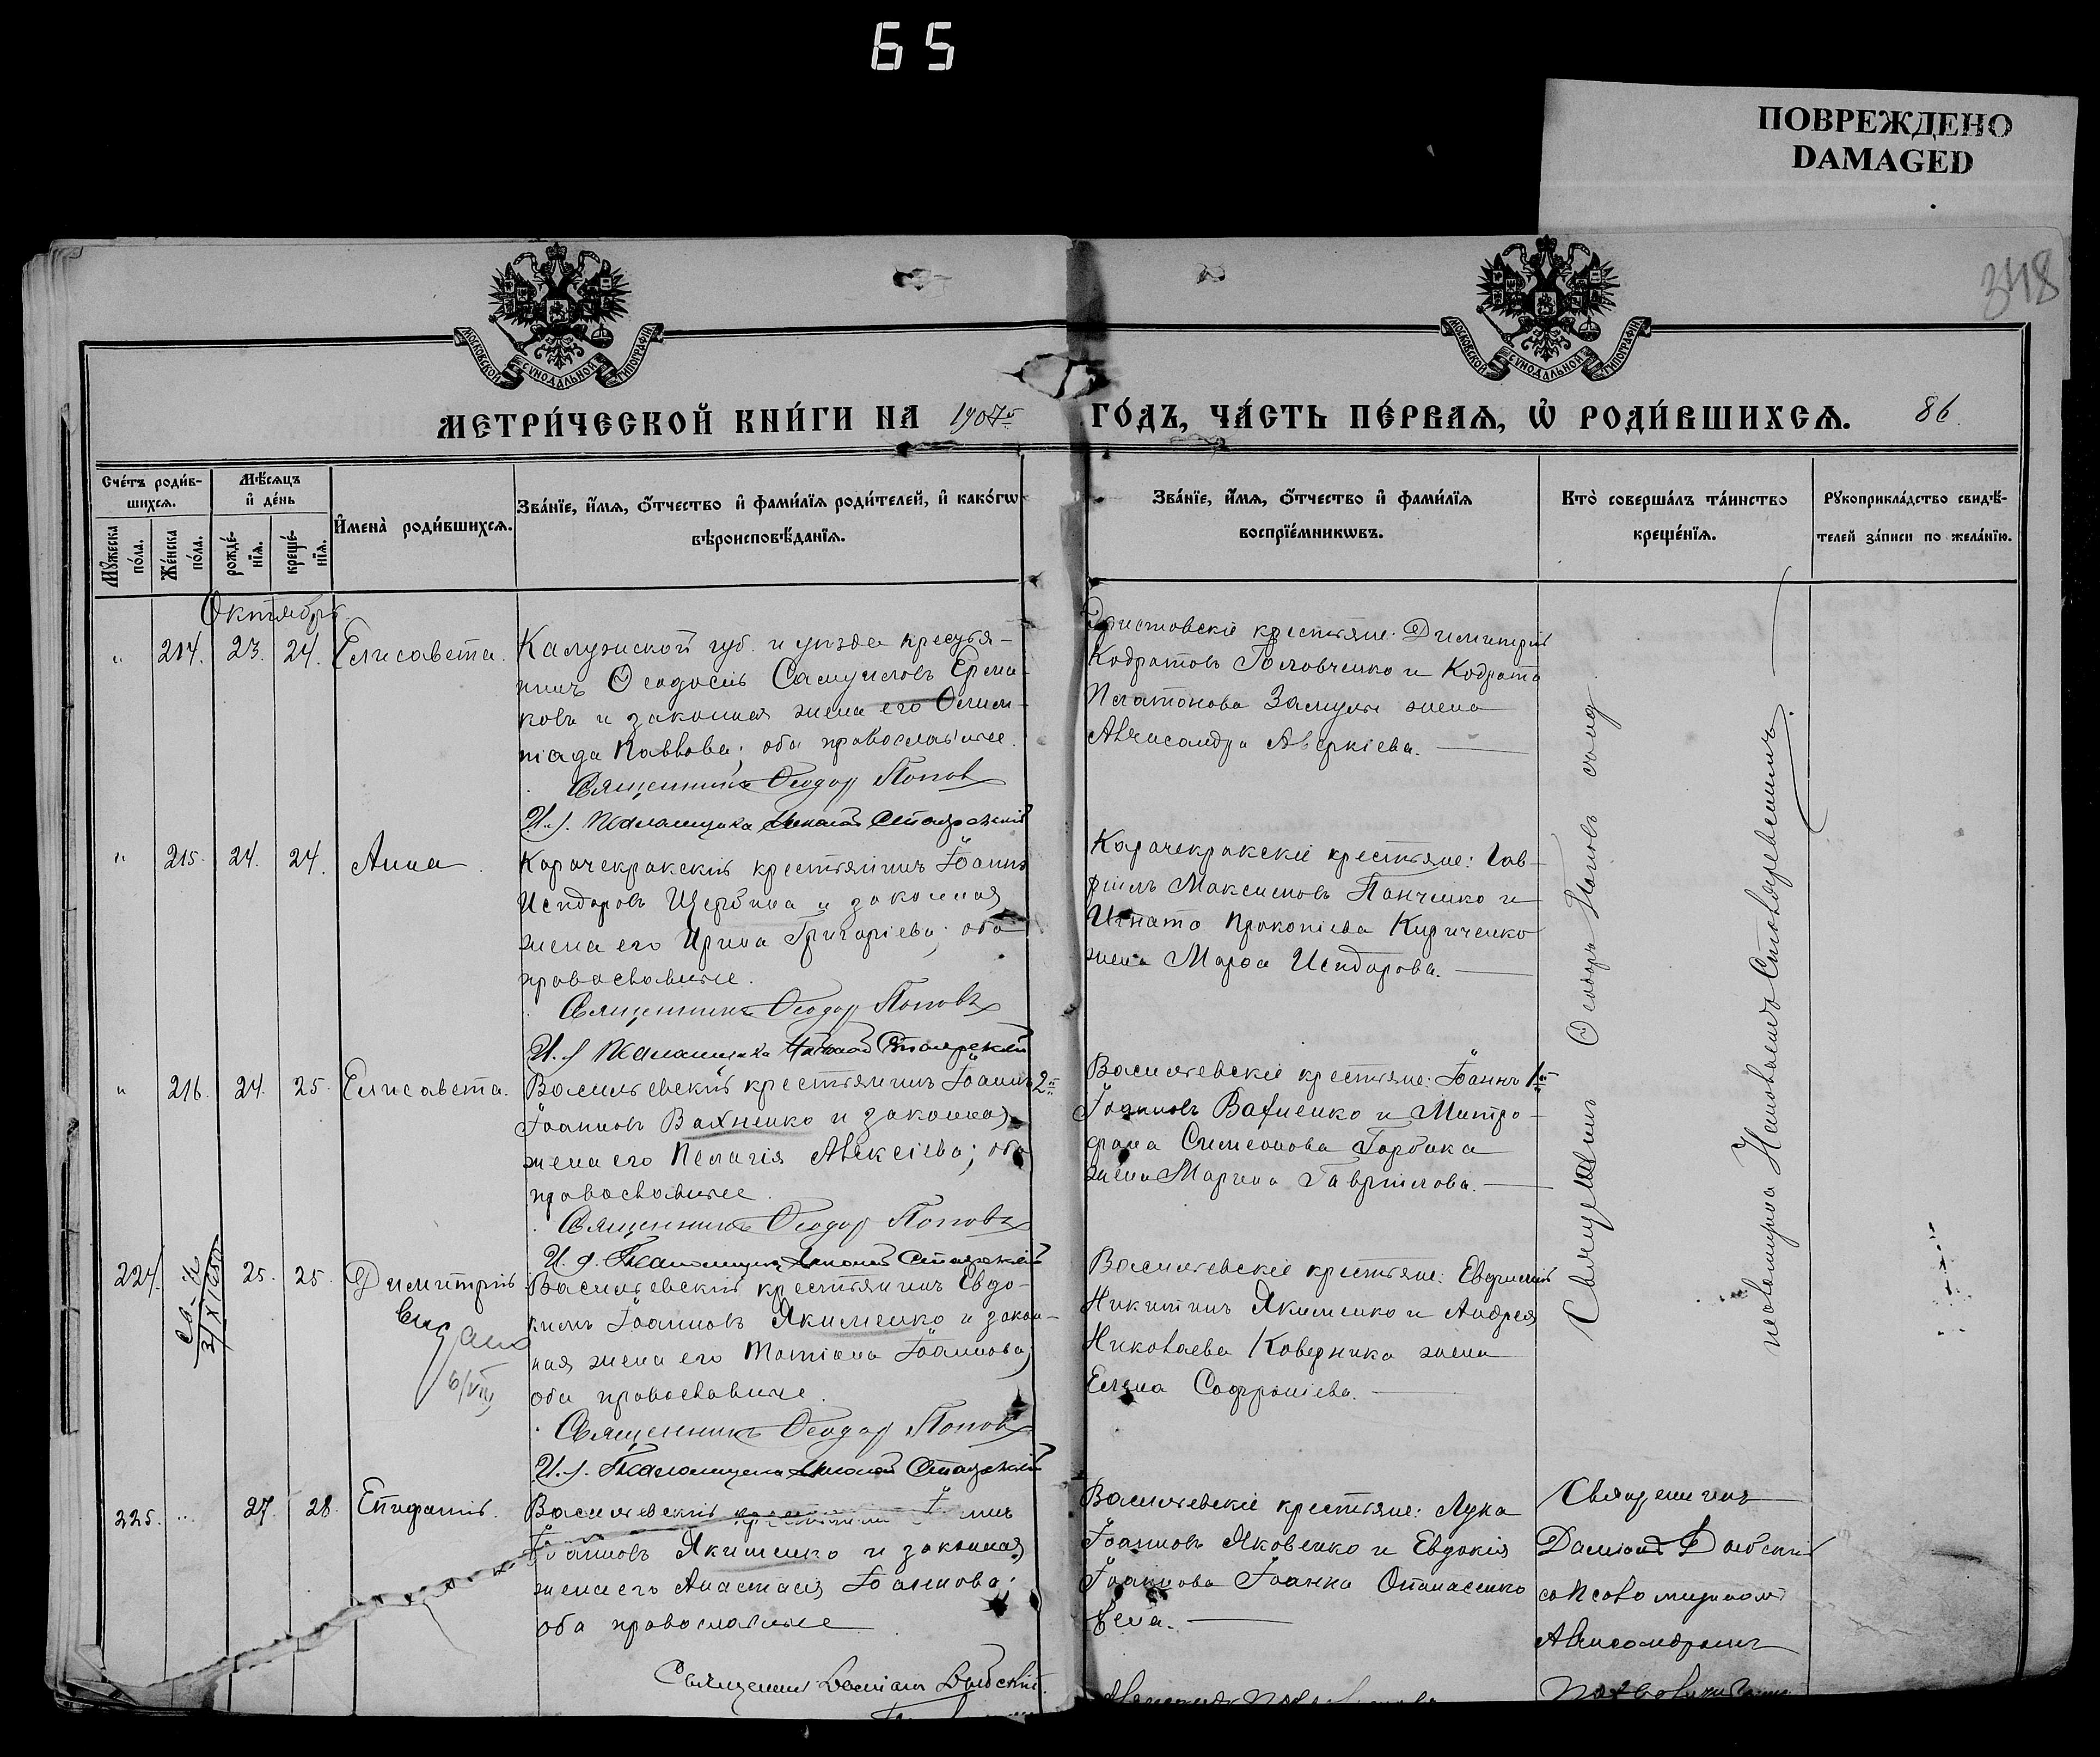 65
ПОВРЕЖДЕНО
DAMAGED
348
МОСКОВСКОЙ СУНОДАЛЬНОЙ ТИПОГРАФІИ
МОСКОВСКОЙ СУНОДАЛЬНОЙ ТИПОГРАФІИ
МЕТРИ́ЧЕСКОЙ КНИ́ГИ НА 1907 й
ГО́ДЪ, ЧА́СТЬ ПЕ́РВАЯ, Ѡ РОДИ́ВШИХСЯ. 86.
Сче́тъ роди́в-
шихся.
Мꙋжеска по́ла.
Же́нска по́ла.
Мѣ́сяцъ
и де́нь
рожде́-
нїя.
креще́-
нїя.
Имена̀ роди́вшихся.
Зва́нїе, и́мя, о́тчество и фами́лїя роди́телей, и како́гѡ
вѣроисповѣ́данїя.
Зва́нїе, и́мя, о́тчество и фами́лїя
воспрїе́мникѡвъ.
Кто̀ соверша́лъ та́инство
креще́нїя.
Рꙋкоприкла́дство свидѣ́-
телей за́писи по жела́нїю.
Октябрь
" 214. 23. 24. Елисавета.
Калужской губ. и уѣзда крестья-
нинъ Ѳеодосій Самуиловъ Ерма-
ковъ и законная жена его Олим-
піада Павлова; оба православные.
Священникъ Ѳеодор Попов
И. д. Псаломщика Николай Столярскій
Димитрій
Кодратовъ Головченко и Кодрата
Платонова жена
Александра Аверкіева.
" 215. 24. 24. Анна.
Карачекракскій крестьянинъ Іоаннъ
Исидоровъ Щербина и законная
жена его Ирина Григоріева; оба
православные.
Священникъ Ѳеодор Поповъ
И. д. Псаломщика Николай Столярскій
Карачекракскіе крестьяне: Гав-
ріилъ Максимовъ Панченко и
Игната Прокопіева Кириченко
жена Марѳа Исидорова.
" 216. 24. 25. Елисавета.
Васильевскій крестьянинъ Іоаннъ 2й
Іоанновъ Вахненко и законная
жена его Пелагія Алексіева; оба
православные.
Священникъ Ѳеодор Поповъ
И. д. Псаломщика Николай Столярскій
Васильевскіе крестьяне: Іоаннъ 1й
Іоанновъ Вахненко и Митро-
фана Симеонова Горбика
жена Марина Гавріилова.
224. 25. 25. Димитрій
3/X 1650
Васильевскій крестьянинъ Евдо-
кимъ Іоанновъ Якименко и закон-
ная жена его Татіана Іоаннова;
оба православные.
Священникъ Ѳеодор Попов
И. д. Псаломщика Николай Столярскій
Васильевскіе крестьяне: Евфимій
Никитинъ Якименко и Андрея
Николаева Коверника жена
Елена Софроніева.
Священникъ Ѳеодоръ Поповъ съ и.д.
псаломщика Николаемъ Столяревскимъ.
225. " 27. 28. Епифаній.
Васильевскій
Іоанновъ Якименко и законная
жена его Анастасія Іоаннова;
оба православные
Священникъ Даміанъ
Васильевскіе крестьяне: Лука
Іоанновъ Яковенко и Евдокія
Іоаннова Іоанна Опанасенко
жена.
Священникъ
Даміанъ
съ псаломщикомъ
Александромъ